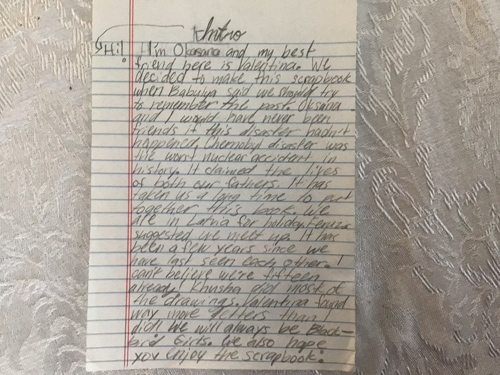 Intro
Hi! I'm Oksana and my best
friend here is Valentina. We
decided to make this scrapbook
when Babulya said we should try
to remember the past. Oksana
and I would have never been
friends if this disaster hadn't
happened. Chernobyl disaster was
the worst nuclear accident in
history. It claimed the lives
of both our fathers. It has
taken us a long time to put
together this book. We
are in Latvia for holiday.
suggested we meet up. It has
been a few years since we
have last seen each other. I
can't believe we're fifteen
already! Ksusha did most of
the drawings. Valentina found
way more letters than I
did. We will always be Black-
bird Girls. We also hope
you enjoy the scrapbook!